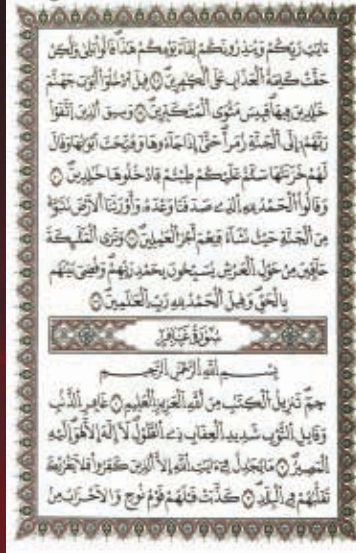 ءَايَٰتِ رَبِّكُمْ وَيُنذِرُونَكُمْ لِقَآءَ يَوْمِكُمْ هَٰذَا قَالُوا۟ بَلَىٰ وَلَٰكِنْ
حَقَّتْ كَلِمَةُ الْعَذَابِ عَلَى الْكَٰفِرِينَ قِيلَ ادْخُلُوٓا۟ أَبْوَٰبَ جَهَنَّمَ
خَٰلِدِينَ فِيهَا فَبِئْسَ مَثْوَى الْمُتَكَبِّرِينَ وَسِيقَ الَّذِينَ اتَّقَوْا۟
رَبَّهُمْ إِلَى الْجَنَّةِ زُمَرًا حَتَّىٰٓ إِذَا جَآءُوهَا وَفُتِّحَتْ أَبْوَٰبُهَا وَقَالَ
لَهُمْ خَزَنَتُهَا سَلَٰمٌ عَلَيْكُمْ طِبْتُمْ فَادْخُلُوهَا خَٰلِدِينَ
وَقَالُوا۟ الْحَمْدُ لِلهِ الَّذِى صَدَقَنَا وَعْدَهُ وَأَوْرَثَنَا الْأَرْضَ نَتَبَوَّأُ
مِنَ الْجَنَّةِ حَيْثُ نَشَآءُ فَنِعْمَ أَجْرُ الْعَٰمِلِينَ وَتَرَى الْمَلَٰٓئِكَةَ
حَآفِّينَ مِنْ حَوْلِ الْعَرْشِ يُسَبِّحُونَ بِحَمْدِ رَبِّهِمْ وَقُضِىَ بَيْنَهُم
بِالْحَقِّ وَقِيلَ الْحَمْدُ لِلهِ رَبِّ الْعَٰلَمِينَ
سُورَةُ غَافِرٍ
بِسْمِ اللَّهِ الرَّحْمَٰنِ الرَّحِيمِ
حمٓ تَنزِيلُ الْكِتَٰبِ مِنَ اللَّهِ الْعَزِيزِ الْعَلِيمِ غَافِرِ الذَّنۢبِ
وَقَابِلِ التَّوْبِ شَدِيدِ الْعِقَابِ ذِى الطَّوْلِ لَآ إِلَٰهَ إِلَّا هُوَ إِلَيْهِ
الْمَصِيرُ مَا يُجَٰدِلُ فِىٓ ءَايَٰتِ اللَّهِ إِلَّا الَّذِينَ كَفَرُوا۟ فَلَا يَغْرُرْكَ
تَقَلُّبُهُمْ فِى الْبِلَٰدِ كَذَّبَتْ قَبْلَهُمْ قَوْمُ نُوحٍ وَالْأَحْزَابُ مِنۢ